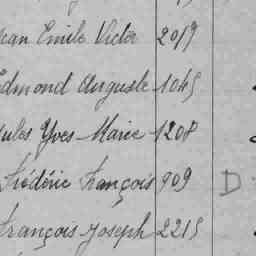 Jean Emile Victor 2019
Edmond Auguste 1045
Jules Yves-Marie 1208
Frédéric François 909 D
François Joseph 2215